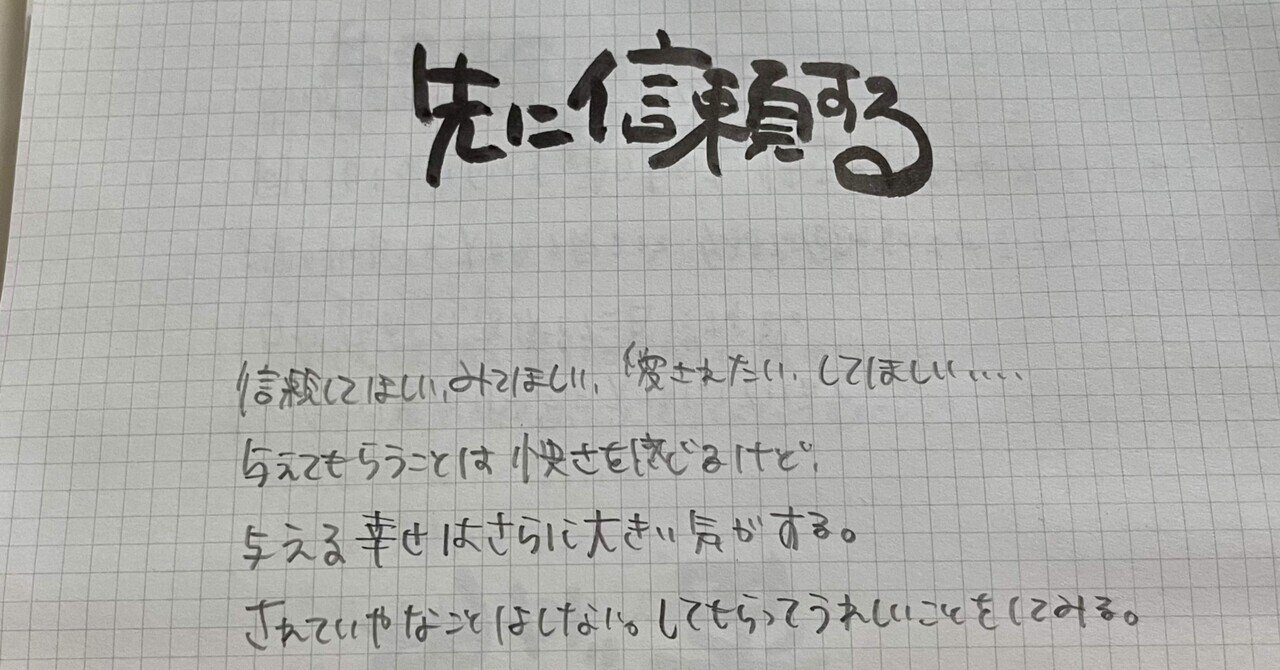 先に信頼する
信頼してほしい、みてほしい、愛されたい、してほしい、、、、
与えてもらうことは快さを感じるけど、
与える幸せはさらに大きい気がする。
されていやなことはしない。してもらってうれしいことをしてみる。